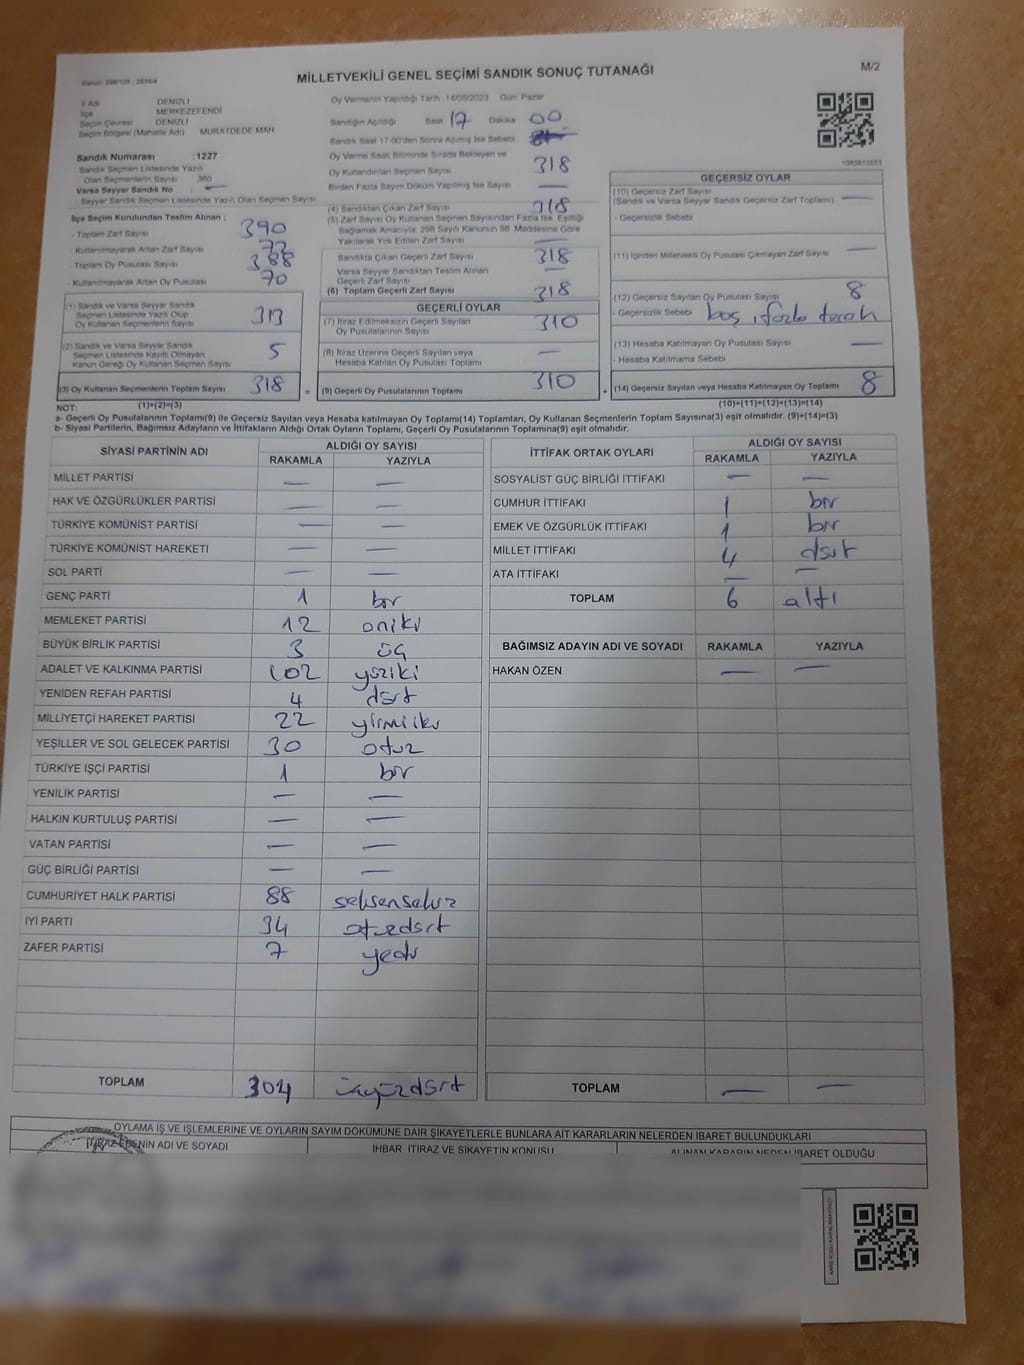 MİLLETVEKİLİ GENEL SEÇİMİ SANDIK SONUÇ TUTANAĞI
M/2
İl Adı DENİZLİ
İlçe MERKEZEFENDİ
Seçim Çevresi DENİZLİ
Seçim Bölgesi (Mahalle Adı) MURATDEDE MAH
Sandık Numarası :1227
Sandık Seçmen Listesinde Yazılı
Olan Seçmenlerin Sayısı 380
Varsa Seyyar Sandık No : —
Seyyar Sandık Seçmen Listesinde Yazılı Olan Seçmen Sayısı
İlçe Seçim Kurulundan Teslim Alınan ;
- Toplam Zarf Sayısı 390
- Kullanılmayarak Artan Zarf Sayısı 72
- Toplam Oy Pusulası Sayısı 388
- Kullanılmayarak Artan Oy Pusulası 70
(1) Sandık ve Varsa Seyyar Sandık
Seçmen Listesinde Yazılı Olup
Oy Kullanan Seçmenlerin Sayısı 313
(2) Sandık ve Varsa Seyyar Sandık
Seçmen Listesinde Kayıtlı Olmayan
Kanun Gereği Oy Kullanan Seçmen Sayısı 5
(3) Oy Kullanan Seçmenlerin Toplam Sayısı 318 =
Oy Vermenin Yapıldığı Tarih :14/05/2023 Gün: Pazar
Sandığın Açıldığı Saat 17 Dakika 00
Sandık Saat 17:00'den Sonra Açılmış İse Sebebi
Oy Verme Saati Bitiminde Sırada Bekleyen ve
Oy Kullandırılan Seçmen Sayısı 318
Birden Fazla Sayım Döküm Yapılmış İse Sayısı —
(4) Sandıktan Çıkan Zarf Sayısı 318
(5) Zarf Sayısı Oy Kullanan Seçmen Sayısından Fazla İse, Eşitliği
Sağlamak Amacıyla, 298 Sayılı Kanunun 98. Maddesine Göre
Yakılarak Yok Edilen Zarf Sayısı —
Sandıkta Çıkan Geçerli Zarf Sayısı 318
Varsa Seyyar Sandıktan Teslim Alınan
Geçerli Zarf Sayısı —
(6) Toplam Geçerli Zarf Sayısı 318
GEÇERLİ OYLAR
(7) İtiraz Edilmeksizin Geçerli Sayılan
Oy Pusulalarının Sayısı 310
(8) İtiraz Üzerine Geçerli Sayılan veya
Hesaba Katılan Oy Pusulası Toplamı —
(9) Geçerli Oy Pusulalarının Toplamı 310 +
GEÇERSİZ OYLAR
(10) Geçersiz Zarf Sayısı
(Sandık ve Varsa Seyyar Sandık Geçersiz Zarf Toplamı) —
- Geçersizlik Sebebi
(11) İçinden Milletvekili Oy Pusulası Çıkmayan Zarf Sayısı —
(12) Geçersiz Sayılan Oy Pusulası Sayısı 8
- Geçersizlik Sebebi boş, fazla tercih
(13) Hesaba Katılmayan Oy Pusulası Sayısı —
- Hesaba Katılmama Sebebi
(14) Geçersiz Sayılan veya Hesaba Katılmayan Oy Toplamı 8
NOT: (1)+(2)=(3) (10)+(11)+(12)+(13)=(14)
a- Geçerli Oy Pusulalarının Toplamı(9) ile Geçersiz Sayılan veya Hesaba katılmayan Oy Toplamı(14) Toplamları, Oy Kullanan Seçmenlerin Toplam Sayısına(3) eşit olmalıdır. (9)+(14)=(3)
b- Siyasi Partilerin, Bağımsız Adayların ve İttifakların Aldığı Ortak Oyların Toplamı, Geçerli Oy Pusulalarının Toplamına(9) eşit olmalıdır.
SİYASİ PARTİNİN ADI ALDIĞI OY SAYISI
RAKAMLA YAZIYLA
MİLLET PARTİSİ — —
HAK VE ÖZGÜRLÜKLER PARTİSİ — —
TÜRKİYE KOMÜNİST PARTİSİ — —
TÜRKİYE KOMÜNİST HAREKETİ — —
SOL PARTİ — —
GENÇ PARTİ 1 bir
MEMLEKET PARTİSİ 12 oniki
BÜYÜK BİRLİK PARTİSİ 3 üç
ADALET VE KALKINMA PARTİSİ 102 yüziki
YENİDEN REFAH PARTİSİ 4 dört
MİLLİYETÇİ HAREKET PARTİSİ 22 yirmiiki
YEŞİLLER VE SOL GELECEK PARTİSİ 30 otuz
TÜRKİYE İŞÇİ PARTİSİ 1 bir
YENİLİK PARTİSİ — —
HALKIN KURTULUŞ PARTİSİ — —
VATAN PARTİSİ — —
GÜÇ BİRLİĞİ PARTİSİ — —
CUMHURİYET HALK PARTİSİ 88 seksensekiz
İYİ PARTİ 34 otuzdört
ZAFER PARTİSİ 7 yedi
TOPLAM 304 üçyüzdört
İTTİFAK ORTAK OYLARI ALDIĞI OY SAYISI
RAKAMLA YAZIYLA
SOSYALİST GÜÇ BİRLİĞİ İTTİFAKI — —
CUMHUR İTTİFAKI 1 bir
EMEK VE ÖZGÜRLÜK İTTİFAKI 1 bir
MİLLET İTTİFAKI 4 dört
ATA İTTİFAKI — —
TOPLAM 6 altı
BAĞIMSIZ ADAYIN ADI VE SOYADI RAKAMLA YAZIYLA
HAKAN ÖZEN — —
TOPLAM — —
OYLAMA İŞ VE İŞLEMLERİNE VE OYLARIN SAYIM DÖKÜMÜNE DAİR ŞİKAYETLERLE BUNLARA AİT KARARLARIN NELERDEN İBARET BULUNDUKLARI
İTİRAZ EDENİN ADI VE SOYADI İHBAR, İTİRAZ VE ŞİKAYETİN KONUSU ALINAN KARARIN NEDEN İBARET OLDUĞU